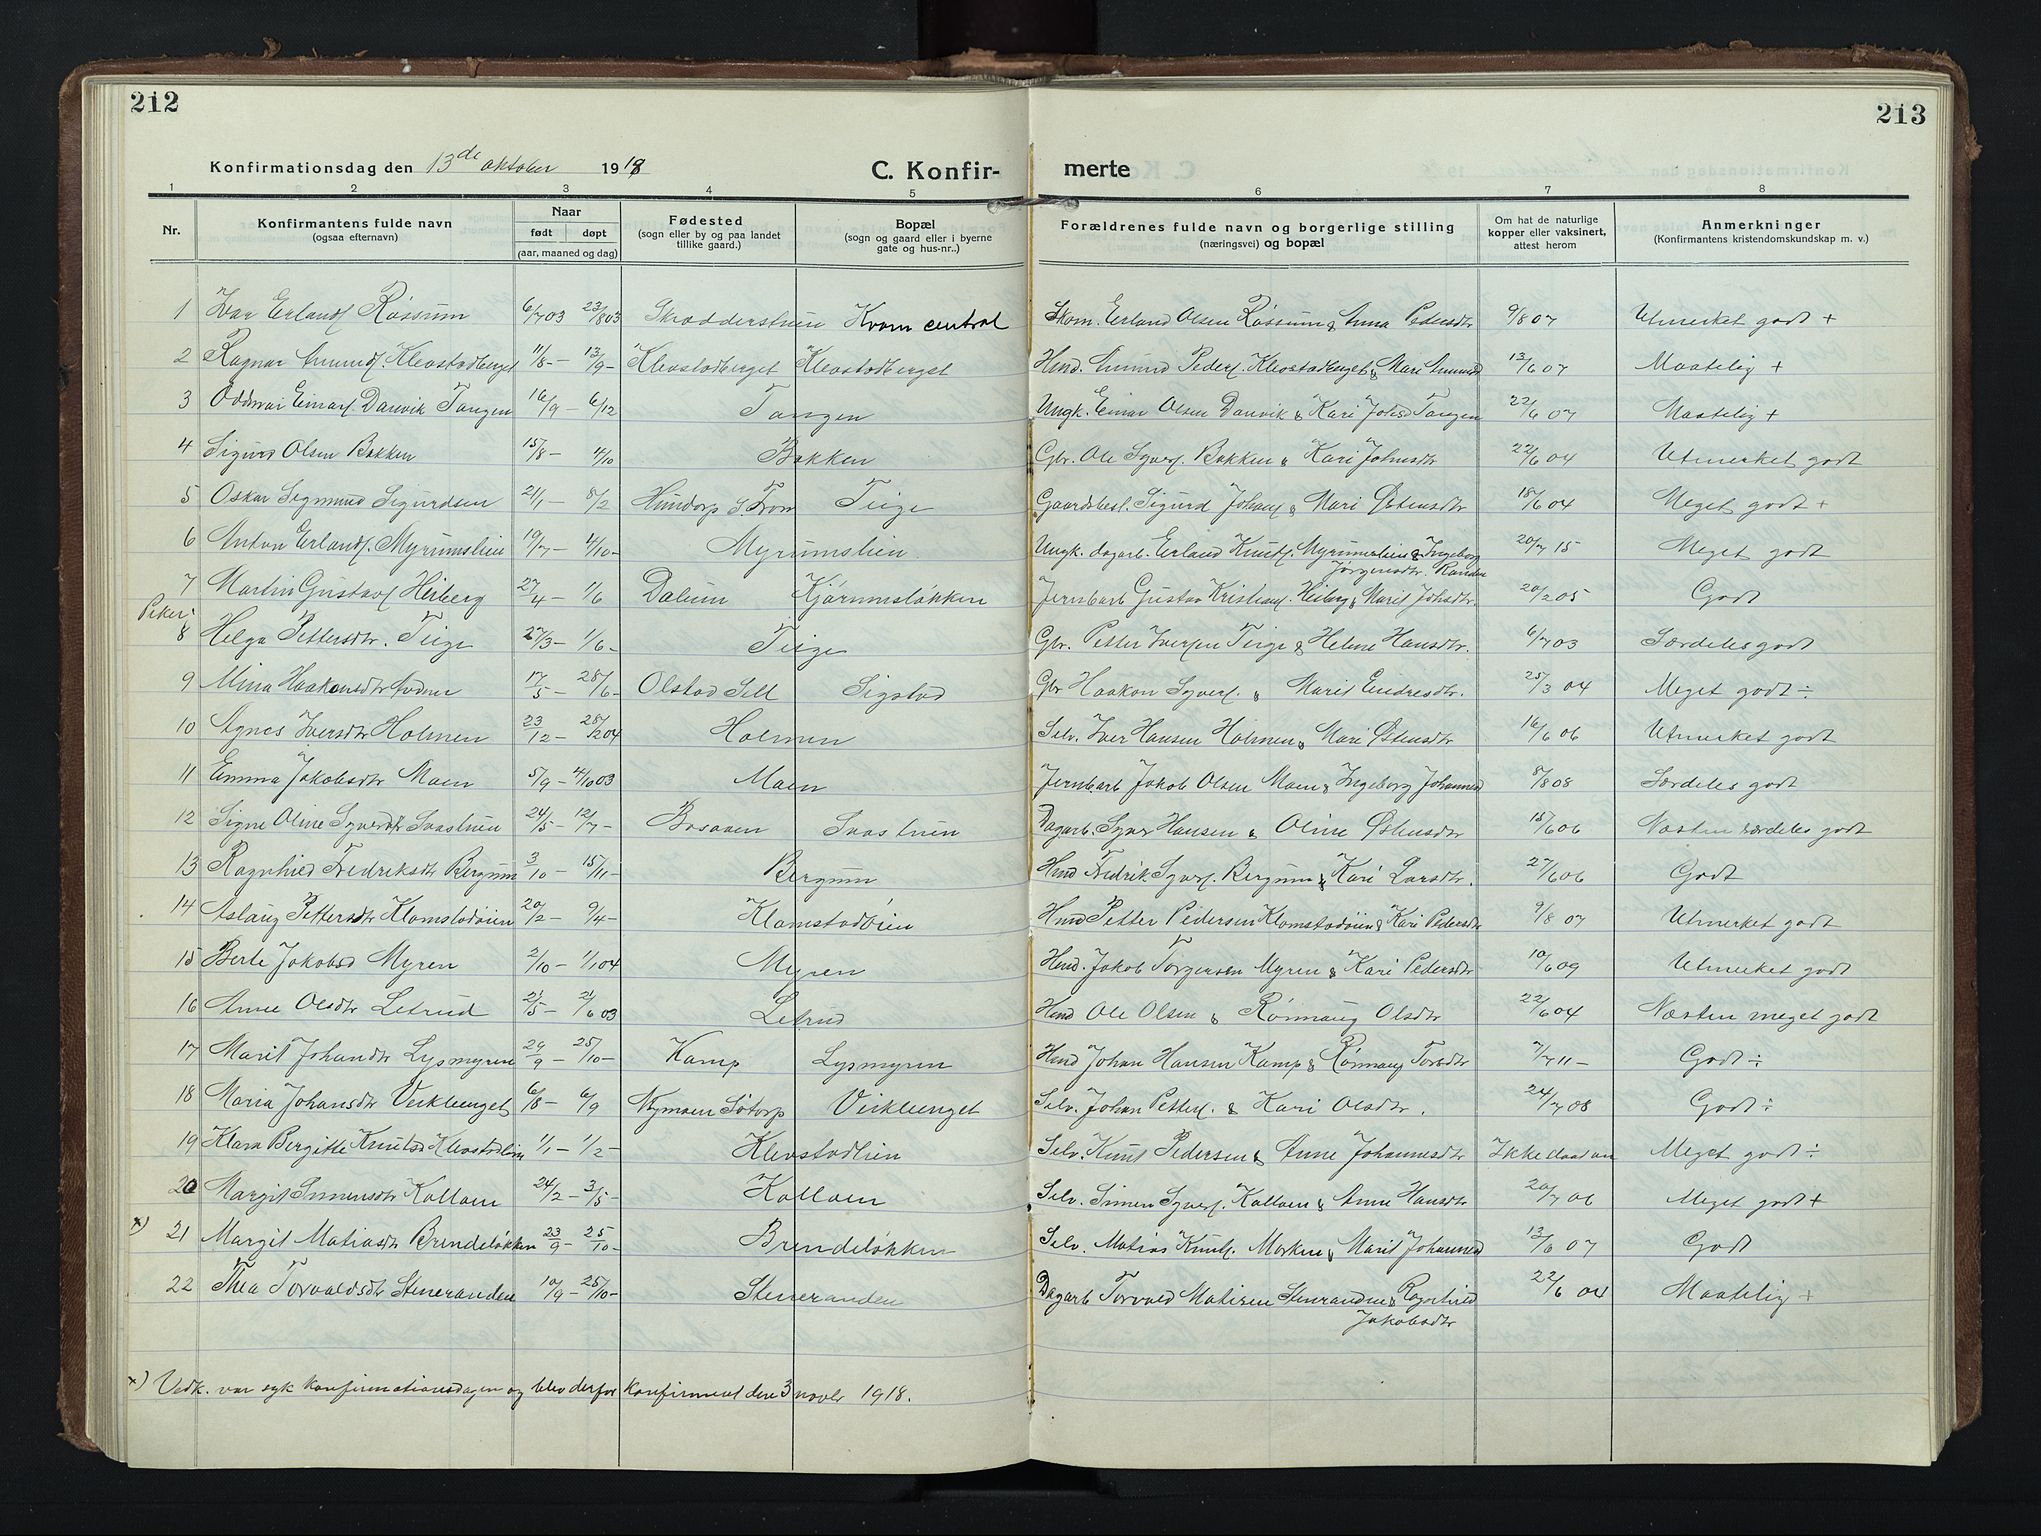 212
213
Konfirmationsdag den 13de oktober 1918
C. Konfir-
merte
1 2 3 4 5 6 7 8
Nr.
Konfirmantens fulde navn
(ogsaa efternavn)
Naar
født
døpt
(aar, maaned og dag)
Fødested
(sogn eller by og paa landet
tillike gaard.)
Bopæl
(sogn og gaard eller i byerne
gate og hus-nr..)
Forældrenes fulde navn og borgerlige stilling
(næringsvei) og bopæl
Om hat de naturlige
kopper eller vaksinert,
attest herom
Anmerkninger
(Konfirmantens kristendomskundskap m. v.)
1 Ivar Erlandf. Røssum 6/7 03 23/8 03 Skrædderstuen Kvam central Skom. Erland Olsen Røssum & Anna Pedersdtr 9/8 07 Utmerket godt +
2 Ragnar Amundf. Klevstadberget 11/8 – 13/9 – Klevstadberget Klevstadberget Husd. Amund Pederf. Klevstadberget & Mari Amundsd 13/6 07 Maatelig +
3 Oddvar Einarf. Danvik Tangen 16/9 – 6/12 Tangen Ungk. Einar Olsen Danvik & Kari Johsd Tangen 22/6 07 Maatelig +
4 Sigurd Olsen Bakken 15/8 – 4/10 Bakken Gbr. Ole Syverf. Bakken & Kari Johnsdtr 22/6 04 Utmerket godt
5 Oskar Sigmund Sigurdsen 21/1 – 8/2 Hundorp S. Fron Teige Gaardsbest. Sigurd Johanf. & Mari Østensdtr 18/6 04 Meget godt +
6 Anton Erlandf. Myrumslien 19/7 – 4/10 – Myrumslien Ungk. dagarb. Erland Knutf. Myrumslien & Ingeborg
Jørgensdtr. Randen 20/7 15 Meget godt
7 Martin Gustavf. Heiberg 27/4 – 1/6 Dalum Kjørumsløkken Jernbarb Gustav Kristianf. Heiberg & Marit Johsdtr. 20/2 05 Godt
Piker:
8 Helga Pettersdtr. Teige 27/3 – 1/6 – Teige Gbr. Petter Iversen Teige & Helene Hansdtr. 6/7 03 Særdeles godt
9 Mina Haakensdtr 17/5 – 28/6 – Olstad Sell Sigstad Gbr Haakon Syverf. & Marit Endresdtr. 25/3 04 Meget godt ÷
10 Agnes Iversdtr Holmen 23/12 – 28/2 04 Holmen Selv. Iver Hansen Holmen & Mari Østensdtr 16/6 06 Utmerket godt
11 Emma Jakobsdtr Moen 5/9 – 4/10 03 Moen Jernbarb Jakob Olsen Moen & Ingeborg Johannesd 8/8 08 Særdeles godt
12 Signe Oline Syversdtr Svastuen 24/5 – 12/7 – Svastuen Dagarb. Syver Hansen & Oline Østensdtr 15/6 06 Næsten særdeles godt
13 Ragnhild Fredriksdtr Bergum 3/10 – 15/11 – Bergum Husd Fredrik Syverf. Bergum & Kari Larsdtr. 27/6 06 Godt
14 Aslaug Pettersdtr Klomstadøien 20/2 – 9/4 – Klomstadøien Husd Petter Pedersen Klomstadøien & Kari Pedersdtr 9/8 07 Utmerket godt
15 Berte Jakobsd Myren 2/10 – 1/1 04 Myren Husd. Jakob Torgersen Myren & Kari Pedersdtr 10/6 09 Utmerket godt
16 Anne Olsdtr Letrud 21/5 – 21/6 03 Letrud Husd Ole Olsen & Rønnaug Olsdtr 22/6 04 Næsten meget godt
17 Marit Johansdtr Lysmyren 29/9 – 25/10 – Kamp Lysmyren Husd Johan Hansen Kamp & Rønnaug Torsdtr 7/7 11 – Godt ÷
18 Maria Johansdtr Veikleenget 6/8 – 6/9 Nymoen Sødorp Veikleenget Selv. Johan Petterf. & Kari Olsdtr. 24/7 08 Godt ÷
19 Klara Bergitte Knutsd Klevstadlien 1/1 – 1/2 – Klevstadlien Selv. Knut Pedersen & Anne Johannesdtr Ikke daatum Meget godt ÷
20 Margit Simensdtr Kolloen 24/2 – 3/5 – Kolloen Selv. Simen Syverf. Kolloen & Anne Hansdtr 20/7 06 Meget godt +
x) 21 Margit Matiasdtr Brendeløkken 23/9 – 25/10 – Brendeløkken Selv. Matias Knutf. Morken & Marit Johannesd 13/6 07 Godt
22 Thea Torvaldsdtr Steneranden 10/9 – 25/10 – Steneranden Dagarb Torvald Matisen Stenranden & Ragnhild
Jakobsdtr 22/6 04 Maatelig +
x) Vedk. var syk konfirmationsdagen og blev derfor konfirmert den 3 novbr 1918.